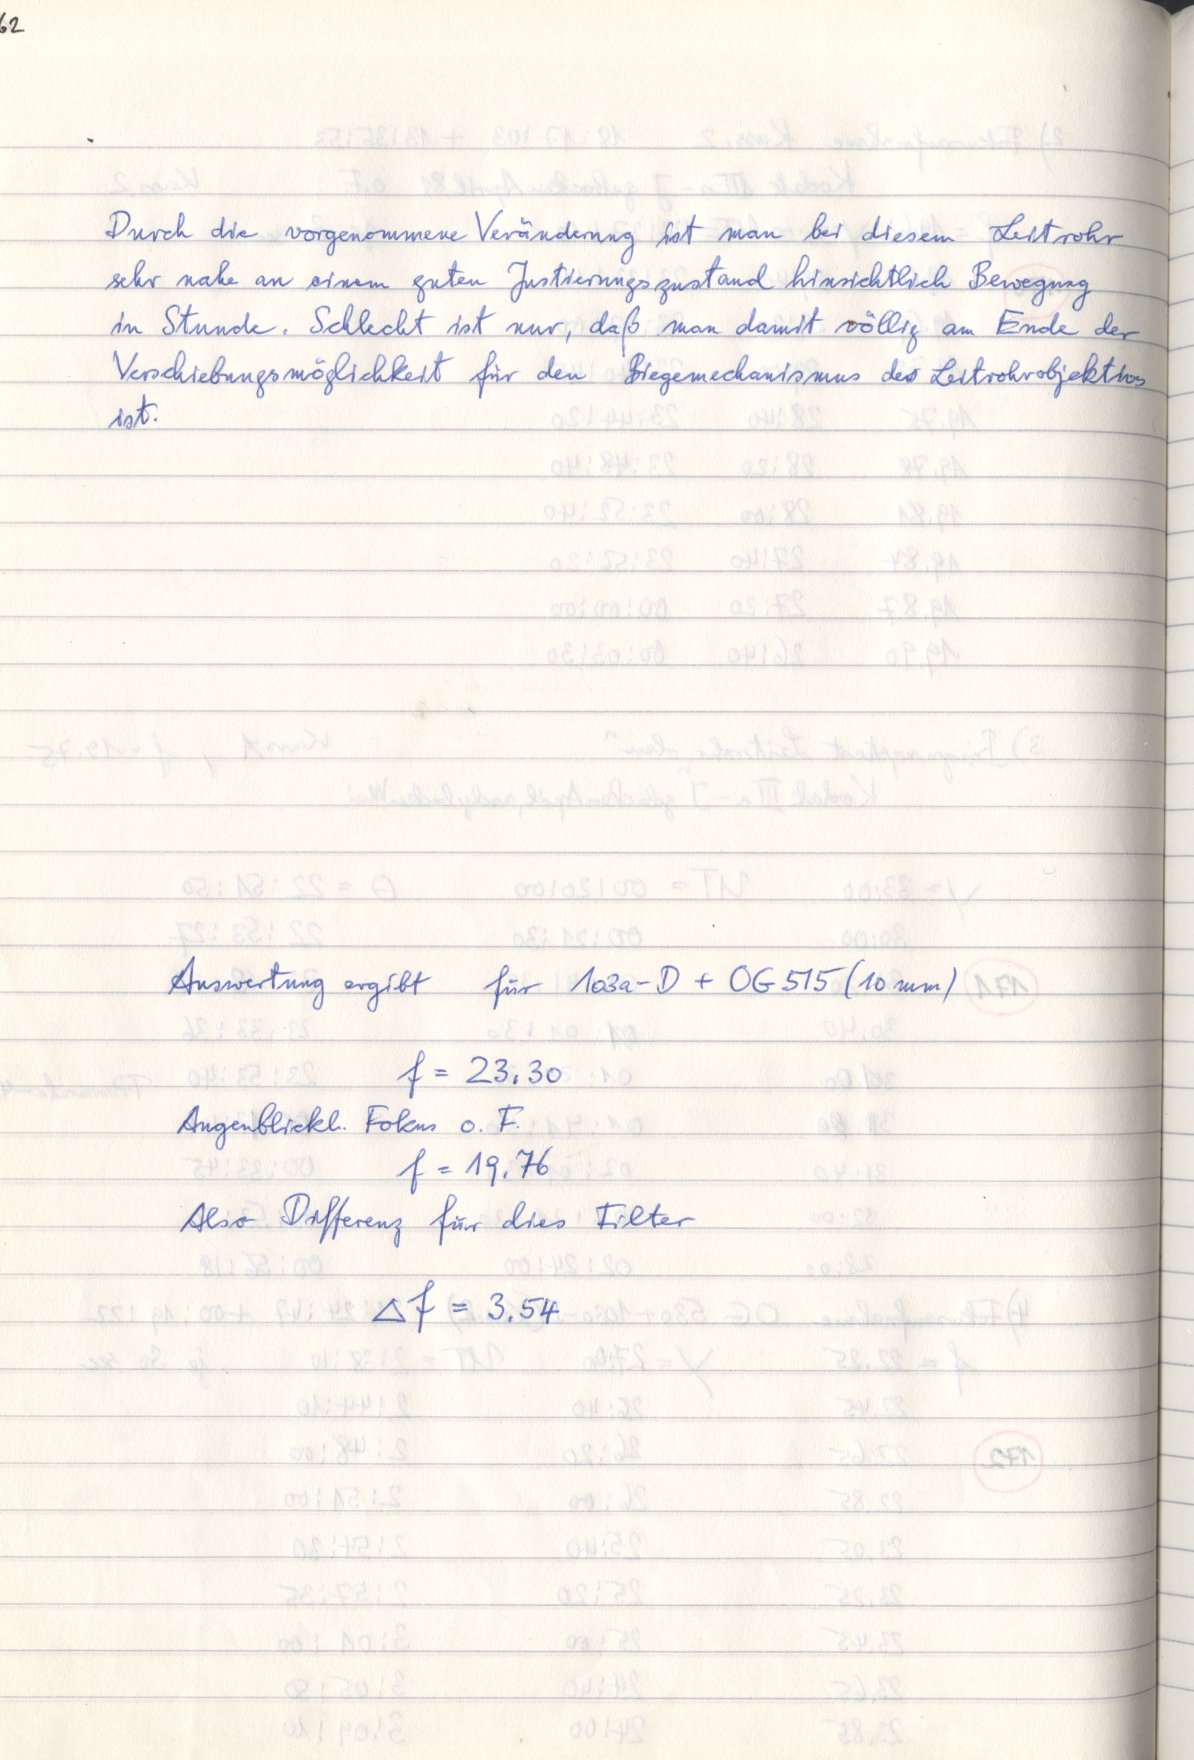 62
Durch die vorgenommene Veränderung ist man bei diesem Leitrohr
sehr nahe an einem guten Justierungszustand hinsichtlich Bewegung
in Stunde. Schlecht ist nur, daß man damit völlig am Ende der
Verschiebungsmöglichkeit für den Biegemechanismus des Leitrohrobjektivs
ist.
Auswertung ergibt für 103a-D + OG 515 (10 mm)
f = 23.30
Augenblickl. Fokus o. F.
f = 19.76
Also Differenz für dies Filter
Δf = 3.54